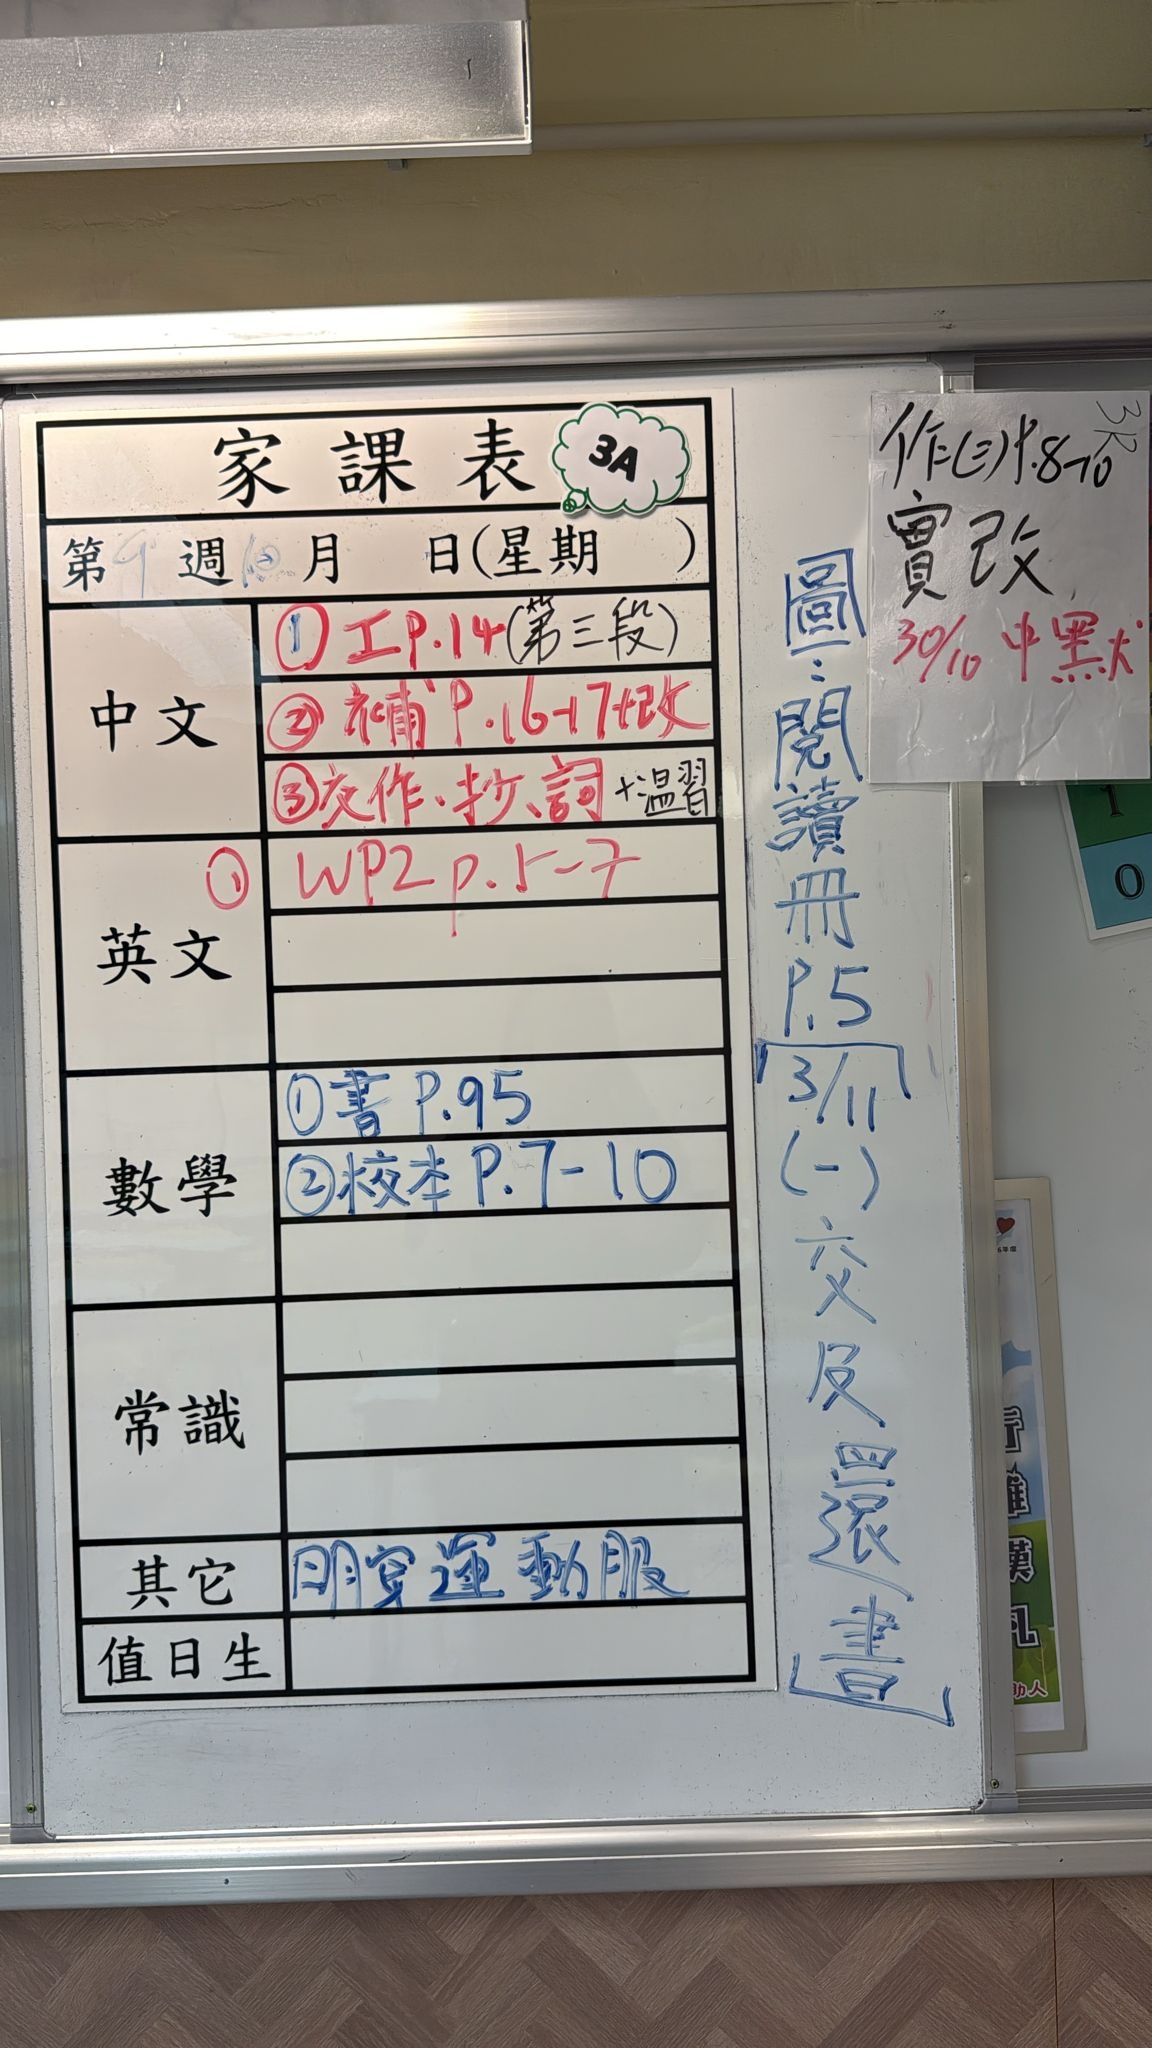 家課表
3A
第9週10月 日(星期 )
中文
① 工P.14(第三段)
② 補P.16-17+改
③交作、抄、詞+溫習
英文
① WP2 p.5-7
數學
①書P.95
②校本P.7-10
常識
其它
明穿運動服
值日生
圖:閱讀冊P.5
3/11(一)交及還書
作(三)P.8-10
實改
30/10 中黑犬
1
0
助人